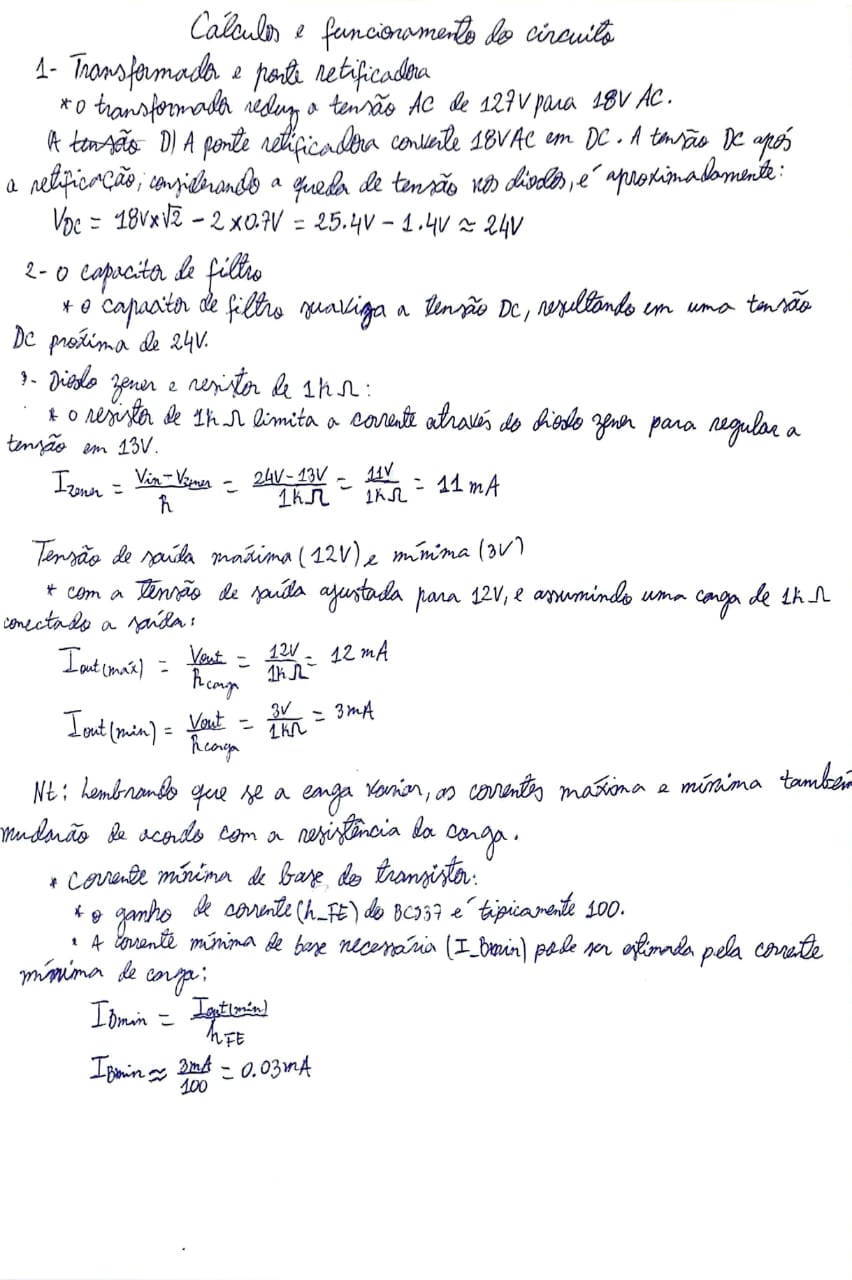 Cálculos e funcionamento do circuito
1- Transformador e ponte retificadora
* o transformador reduz a tensão AC de 127V para 18V AC.
(A tensão D) A ponte retificadora converte 18VAC em DC. A tensão DC após
a retificação, considerando a queda de tensão nos diodos, é aproximadamente:
VDC = 18V×√2 - 2 × 0.7V = 25.4V - 1.4V ≈ 24V
2- o capacitor de filtro
* o capacitor de filtro suaviza a tensão DC, resultando em uma tensão
DC próxima de 24V.
3- Diodo zener e resistor de 1kΩ:
* o resistor de 1kΩ limita a corrente através do diodo zener para regular a
tensão em 13V.
Izener = (Vin - Vzener)/R = (24V - 13V)/1kΩ = 11V/1kΩ = 11 mA
Tensão de saída máxima (12V) e mínima (3V)
* com a Tensão de saída ajustada para 12V, e assumindo uma carga de 1kΩ
conectado a saída:
Iout(máx) = Vout/Rcarga = 12V/1kΩ = 12 mA
Iout(min) = Vout/Rcarga = 3V/1kΩ = 3mA
Nt: Lembrando que se a carga variar, as correntes máxima e mínima também
mudarão de acordo com a resistência da carga.
* Corrente mínima de base do transistor:
* o ganho de corrente (h_FE) do BC337 é tipicamente 100.
* A corrente mínima de base necessária (I_Bmin) pode ser estimada pela corrente
mínima de carga:
IBmin = Iout(min)/hFE
IBmin ≈ 3mA/100 = 0.03mA